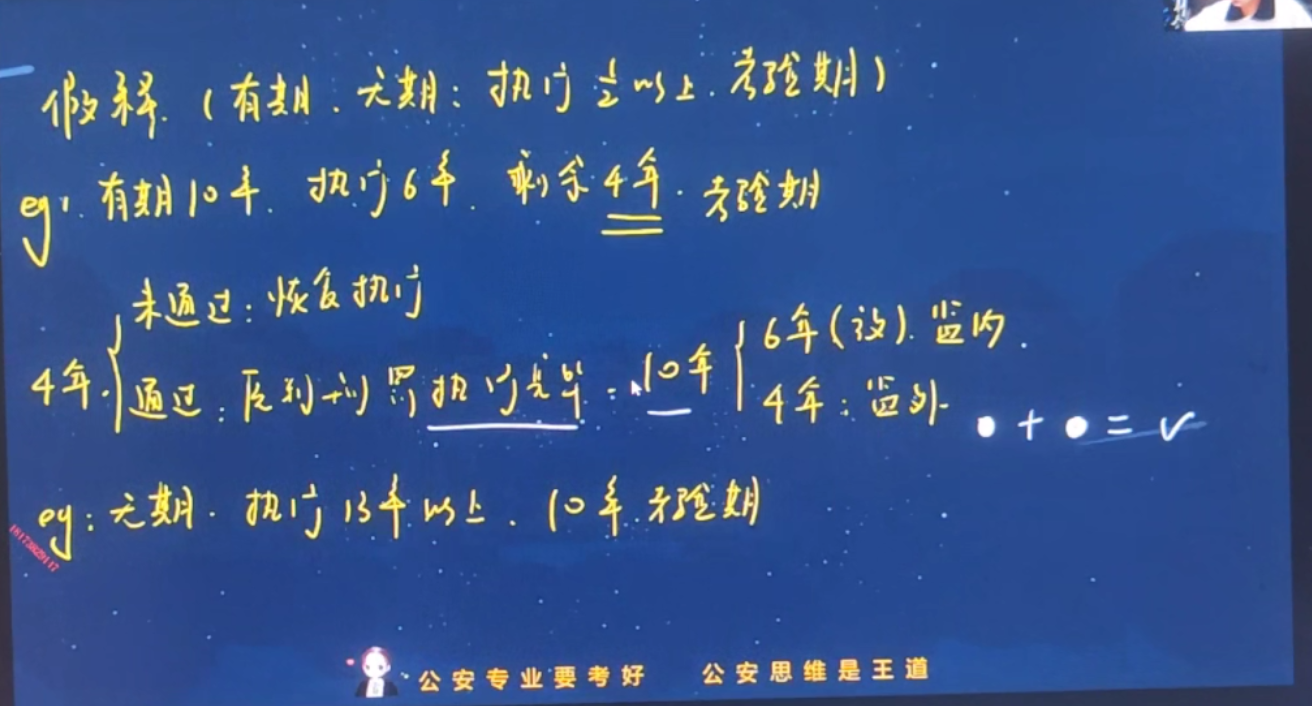 假释.（有期、无期：执行1/2以上.考验期）
eg：有期10年.执行6年.剩余4年.考验期
未通过：恢复执行
4年.
通过：原判刑罚执行完毕：10年
6年（设）.监内.
4年：监外.
● + ● = ✓
eg：无期.执行13年以上.10年考验期
18173629117
公安专业要考好 公安思维是王道